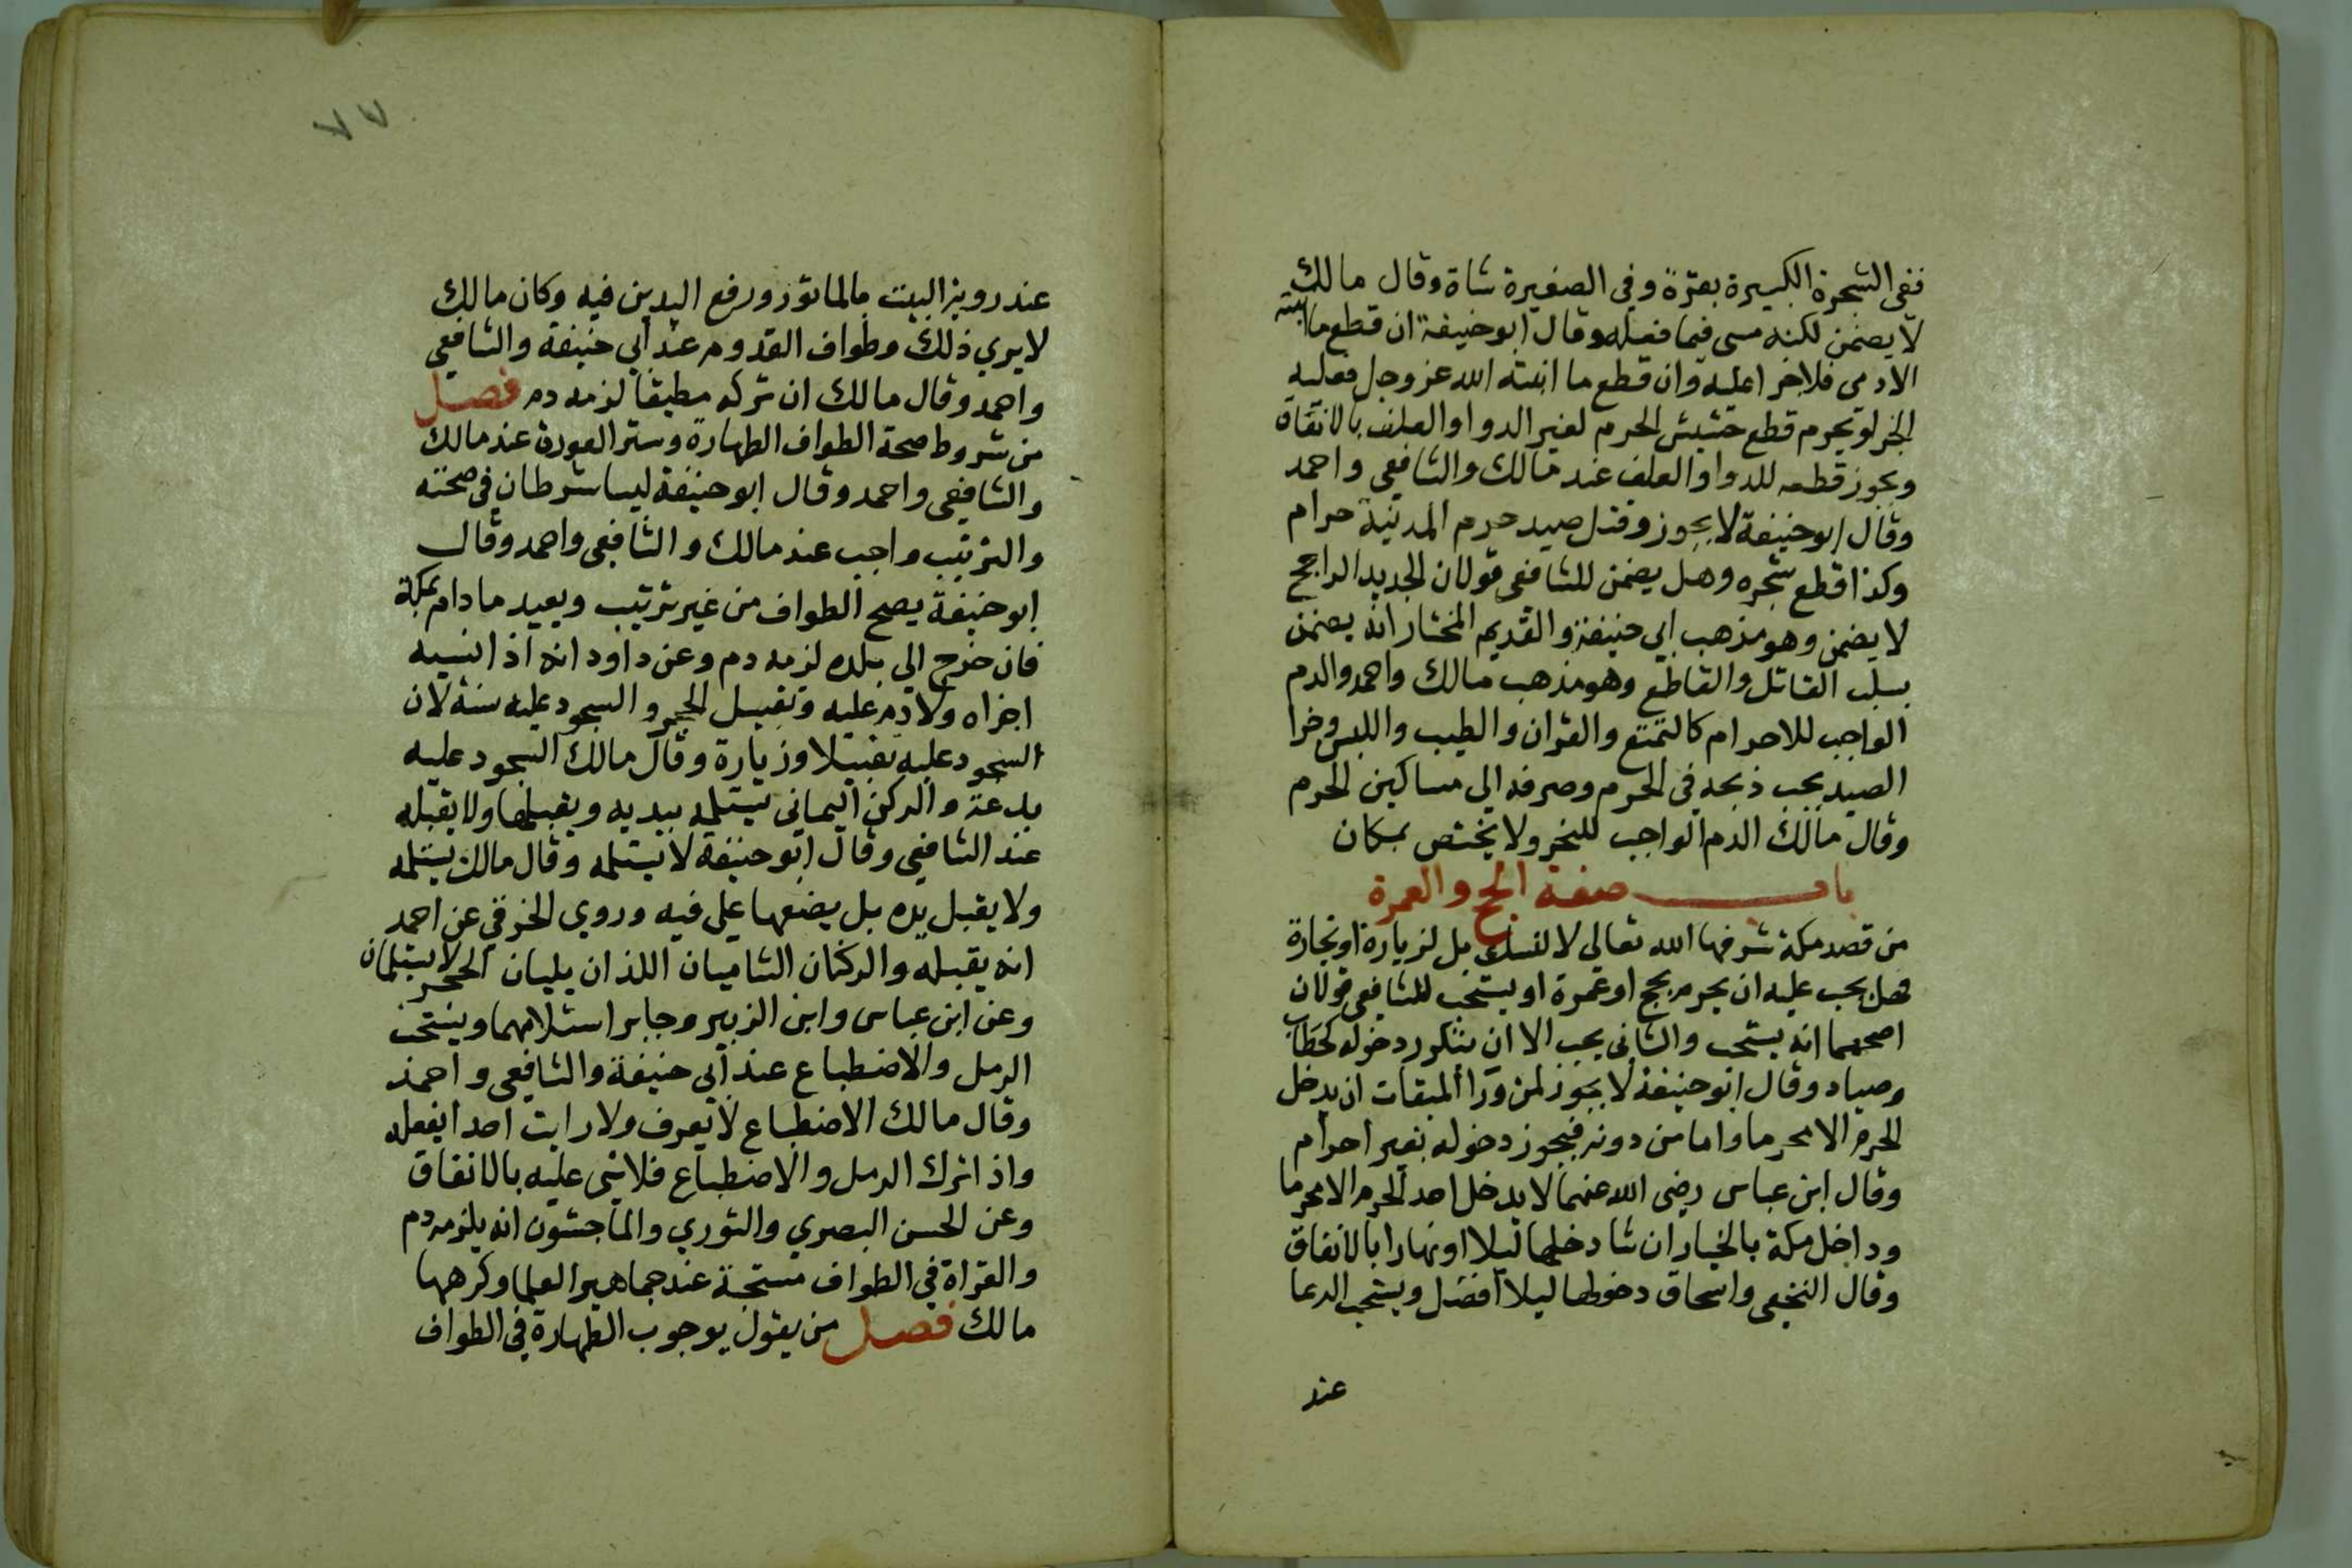 ففي الشجرة الكبيرة بقرة وفي الصغيرة شاة وقال مالك
لا يضمن لكنه مسى فيما فعله وقال ابو حنيفة ان قطع ما انبته
الادمى فلا جزا عليه وان قطع ما انبته الله عز وجل فعليه
الجزا ويحرم قطع حشيش الحرم لغير الدوا والعلف بالاتفاق
ويجوز قطعه للدوا والعلف عند مالك والشافعي واحمد
وقال ابو حنيفة لا يجوز وقتل صيد حرم المدينة حرام
وكذا قطع شجره وهل يضمن للشافعي قولان الجديد الراجح
لا يضمن وهو مذهب ابي حنيفة والقديم المختار انه يضمن
بسلب القاتل والقاطع وهو مذهب مالك واحمد والدم
الواجب للاحرام كالتمتع والقران والطيب واللبس وجزا
الصيد يجب ذبحه في الحرم وصرفه الى مساكين الحرم
وقال مالك الدم الواجب للنحر ولا يختص بمكان
باب صفة الحج والعمرة
من قصد مكة شرفها الله تعالى لا لنسك بل لزيارة او تجارة
فهل يجب عليه ان يحرم بحج او عمرة او يستحب للشافعي قولان
اصحهما انه يستحب والثانى يجب الا ان يتكرر دخوله كحطاب
وصياد وقال ابو حنيفة لا يجوز لمن ورا الميقات ان يدخل
الحرم الا محرما واما من دونه فيجوز دخوله بغير احرام
وقال ابن عباس رضى الله عنهما لا يدخل احد الحرم الا محرما
وداخل مكة بالخيار ان شا دخلها ليلا او نهارا بالاتفاق
وقال النخعي واسحاق دخولها ليلا افضل ويستحب الدعا
عند
٧٧
عند روية البيت بالماثور ورفع اليدين فيه وكان مالك
لا يري ذلك وطواف القدوم عند ابي حنيفة والشافعي
واحمد وقال مالك ان تركه مطيقا لزمه دم فصل
من شروط صحة الطواف الطهارة وستر العورة عند مالك
والشافعي واحمد وقال ابو حنيفة ليسا شرطان في صحته
والترتيب واجب عند مالك والشافعي واحمد وقال
ابو حنيفة يصح الطواف من غير ترتيب ويعيد ما دام بمكة
فان خرج الي بلده لزمه دم وعن داود انه اذا نسيه
اجزاه ولا دم عليه وتقبيل الحجر والسجود عليه سنة لان
السجود عليه تقبيلا وزيارة وقال مالك السجود عليه
بدعة والركن اليماني يستلمه بيديه ويقبلها ولا يقبله
عند الشافعي وقال ابو حنيفة لا يستلمه وقال مالك يستلمه
ولا يقبل يده بل يضعها علي فيه وروي الخرقي عن احمد
انه يقبله والركنان الشاميان اللذان يليان الحجر لا يستلمان
وعن ابن عباس وابن الزبير وجابر استلامهما ويستحب
الرمل والاضطباع عند ابي حنيفة والشافعي واحمد
وقال مالك الاضطباع لا يعرف ولا رايت احدا يفعله
واذا ترك الرمل والاضطباع فلا شي عليه بالاتفاق
وعن الحسن البصري والثوري والماجشون انه يلزمه دم
والقراة في الطواف مستحبة عند جماهير العلما وكرهها
مالك فصل من يقول بوجوب الطهارة في الطواف